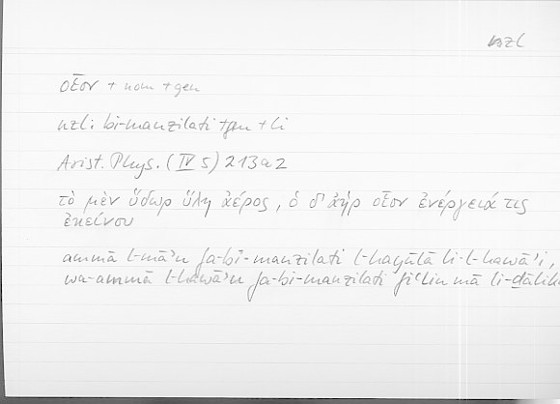 nzl
οἷον + nom + gen
nzl: bi-manzilati + gen + li
Arist. Phys. (IV 5) 213a2
τὸ μὲν ὕδωρ ὕλη ἀέρος, ὁ δ' ἀὴρ οἷον ἐνέργειά τις
ἐκείνου
ammā l-mā'u fa-bi-manzilati l-hayūlā li-l-hawā'i,
wa-ammā l-hawā'u fa-bi-manzilati fiʿlin mā li-ḏālika